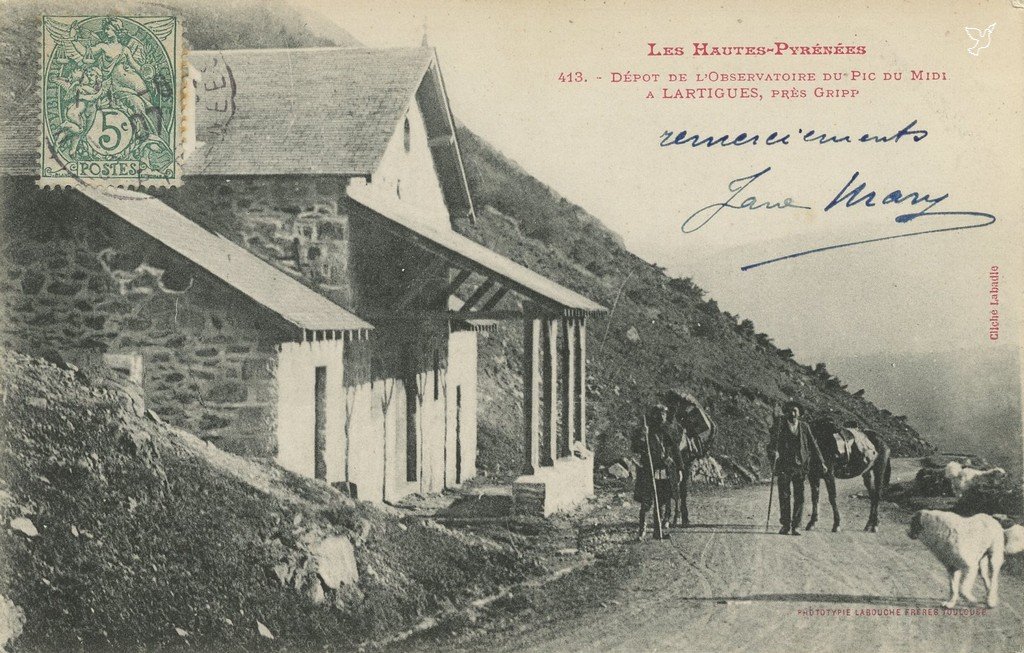 LES HAUTES-PYRÉNÉES
413. - DÉPOT DE L'OBSERVATOIRE DU PIC DU MIDI
A LARTIGUES, PRÈS GRIPP
remerciements
Mary
Cliché Labadie
5c
POSTES
PHOTOTYPIE LABOUCHE FRÈRES TOULOUSE